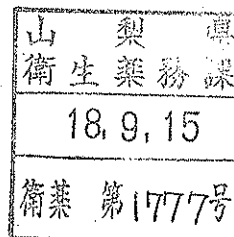 山梨県
衛生薬務課
18.9.15
衛薬 第1777号